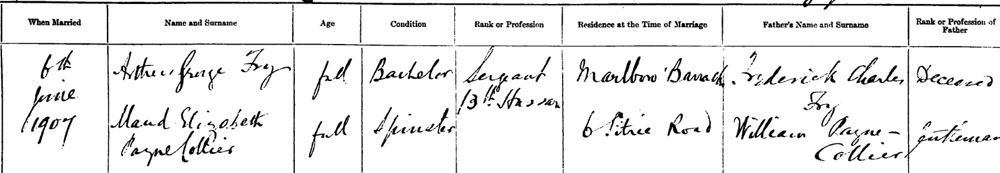 When Married Name and Surname Age Condition Rank or Profession Residence at the Time of Marriage Father's Name and Surname Rank or Profession of Father
6th June 1907
Arthur George Fry full Bachelor Sergeant 13th Hussars Marlboro' Barracks Frederick Charles Fry Deceased
Maud Elizabeth Payne Collier full Spinster 6 Pitrie Road William Payne-Collier Gentleman